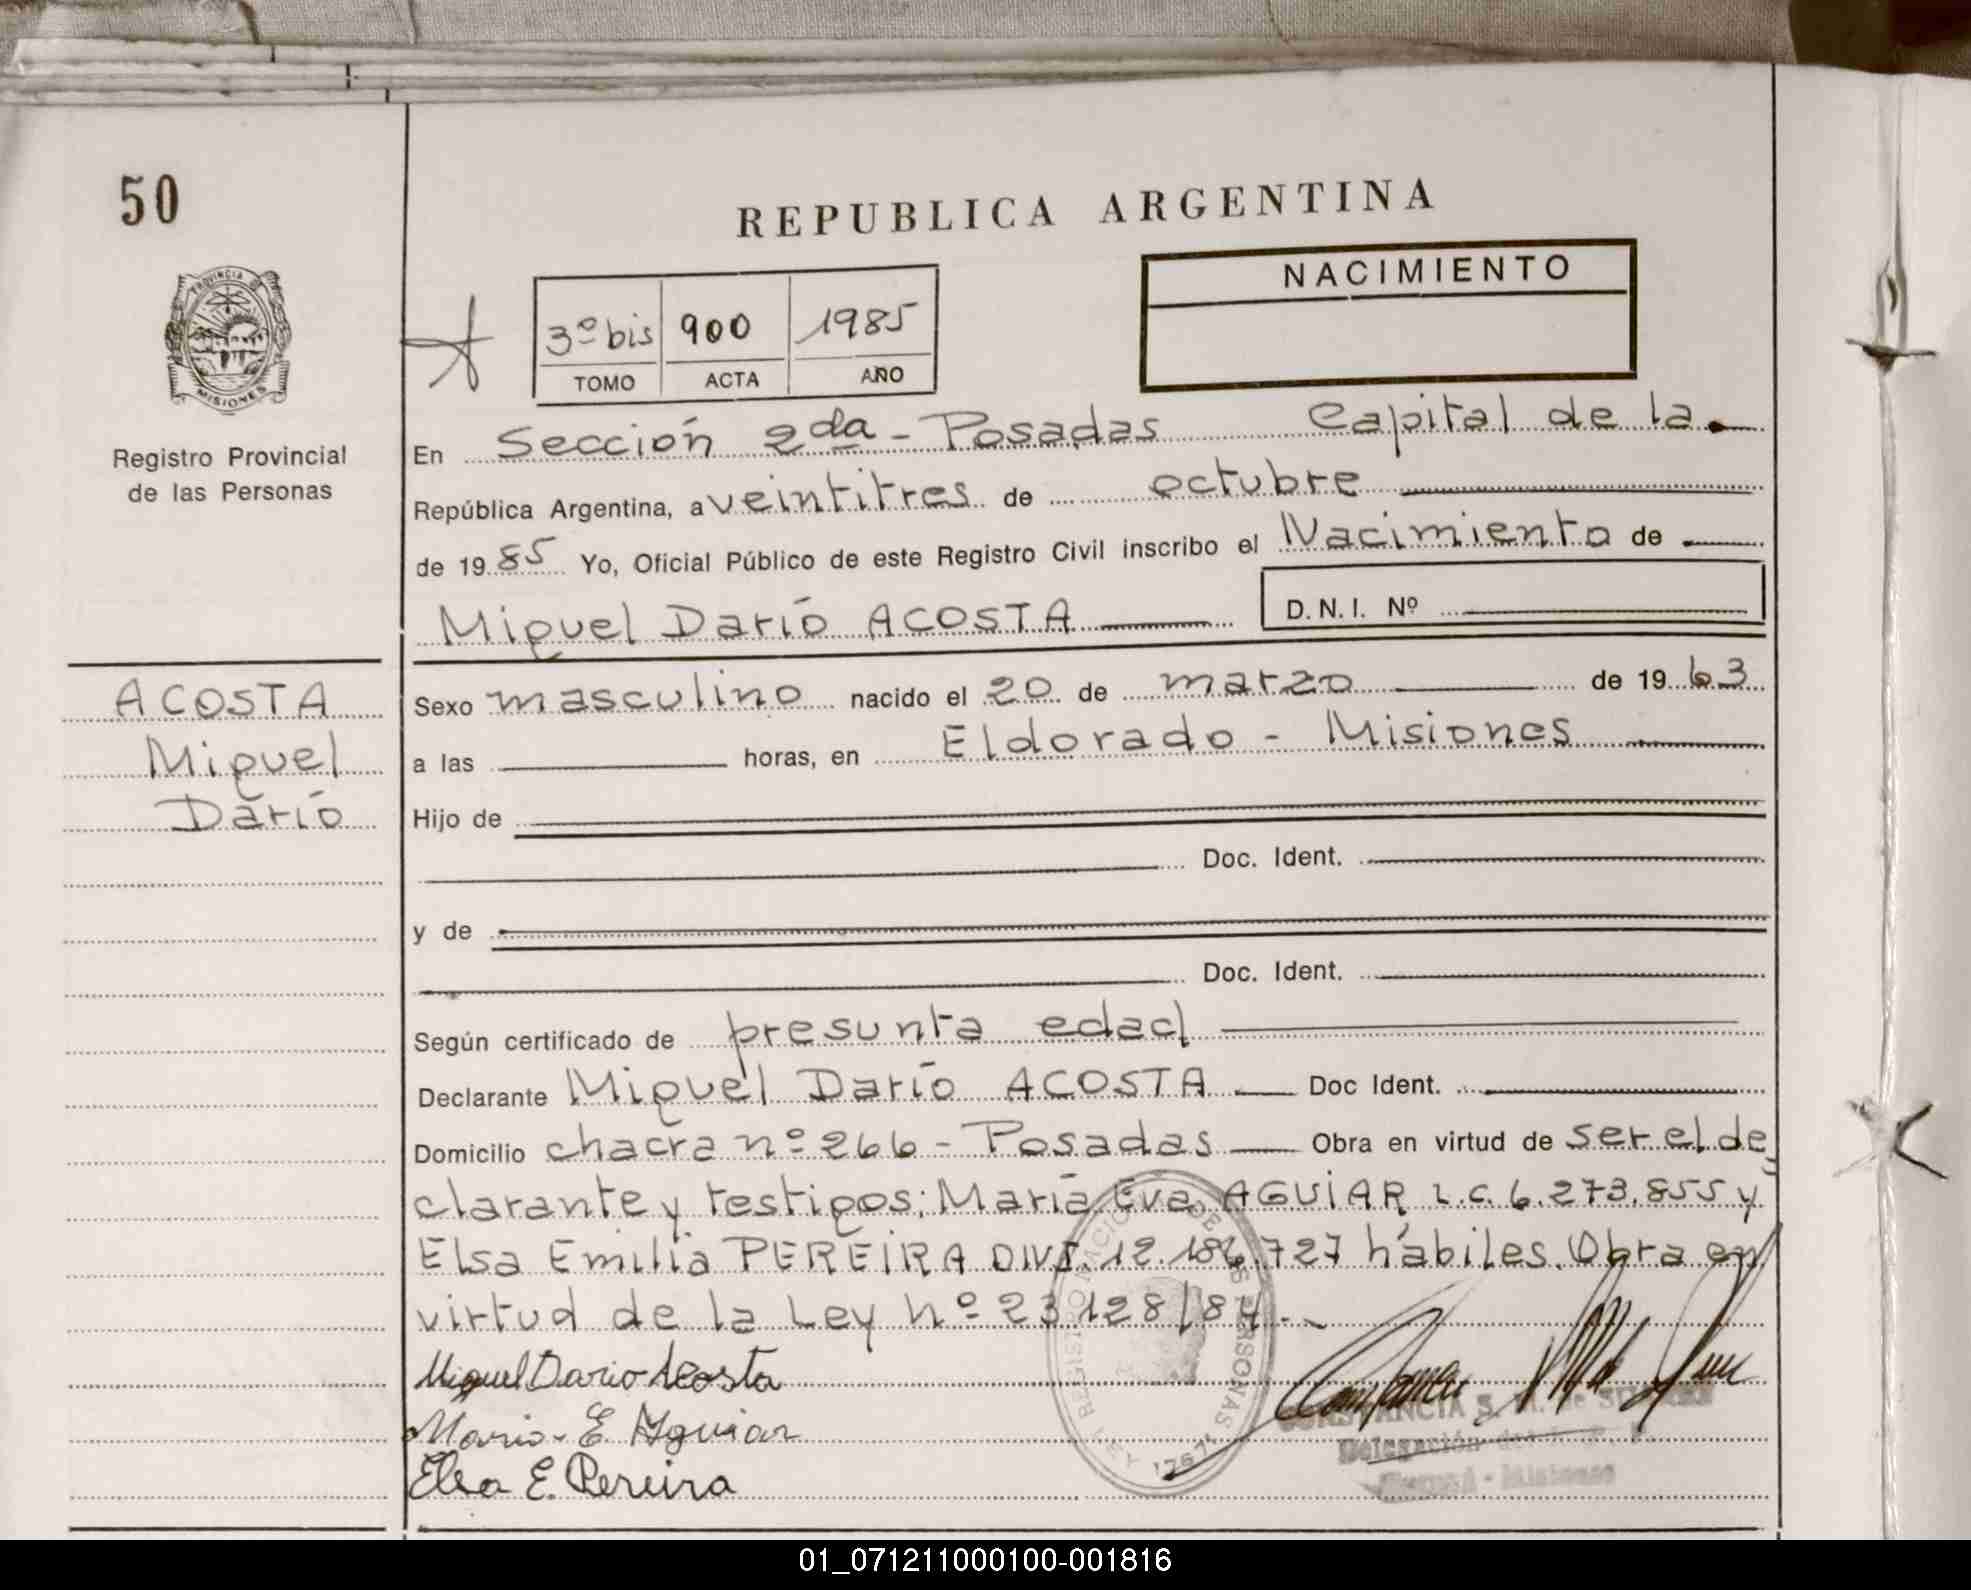 50
REPUBLICA ARGENTINA
PROVINCIA DE
MISIONES
Registro Provincial
de las Personas
3º bis 900 1985
TOMO ACTA AÑO
NACIMIENTO
En Sección 2da - Posadas Capital de la
República Argentina, a veintitres de octubre
de 1985 Yo, Oficial Público de este Registro Civil inscribo el Nacimiento de
Miguel Darío ACOSTA D.N.I. Nº
ACOSTA
Miguel
Darío
Sexo masculino nacido el 20 de marzo de 1963
a las horas, en Eldorado - Misiones
Hijo de
Doc. Ident.
y de
Doc. Ident.
Según certificado de presunta edad
Declarante Miguel Darío ACOSTA Doc Ident.
Domicilio chacra nº 266 - Posadas Obra en virtud de ser el de
clarante y testigos: María Eva AGUIAR L.C. 6.273.855 y
Elsa Emilia PEREIRA DNI. 12.186.727 hábiles. Obra en
virtud de la Ley nº 23128/84.-
Miguel Dario Acosta
Maria E Aguiar
Elsa E. Pereira
REGISTRO NACIONAL DE LAS PERSONAS
LEY 17671
CONSTANCIA S. M. de
Delegación del
- Misiones
01_071211000100-001816